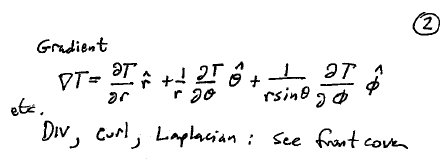 ②
Gradient
∇T = ∂T/∂r r̂ + 1/r ∂T/∂θ θ̂ + 1/(r sinθ) ∂T/∂ϕ ϕ̂
etc.
Div, curl, Laplacian : see front cover